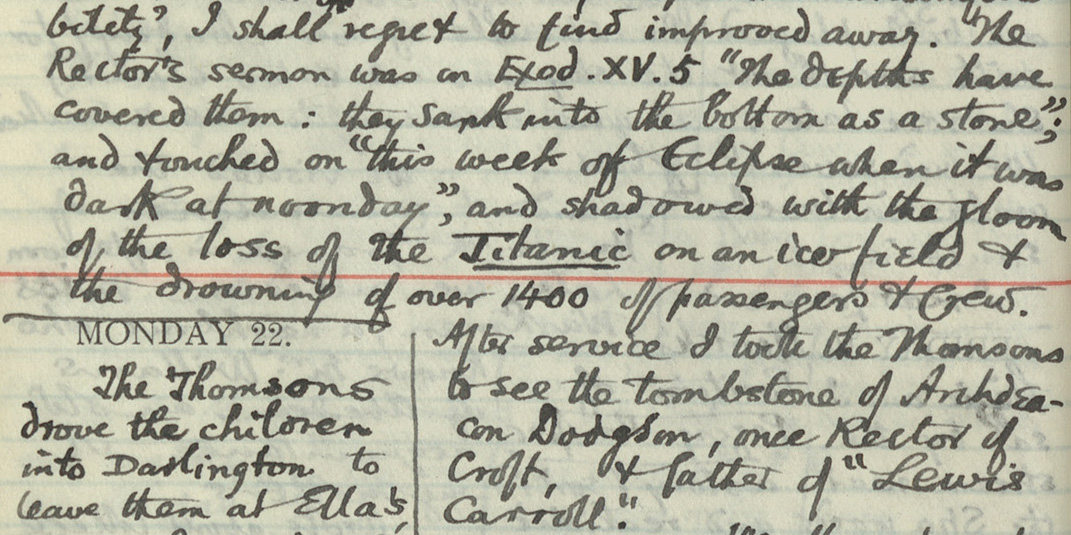 bility", I shall regret to find improved away. "The
Rector's sermon was on Exod. XV. 5 "The depths have
covered them: they sank into the bottom as a stone";
and touched on "this week of Eclipse when it was
dark at noonday", and shadowed with the gloom
of the loss of the Titanic on an ice field &
the drowning of over 1400 of passengers & Crew.
After service I took the Thomsons
to see the tombstone of Archdea-
con Dodgson, once Rector of
Croft, & father of "Lewis
Carroll".
MONDAY 22.
The Thomsons
drove the children
into Darlington to
leave them at Ella's,